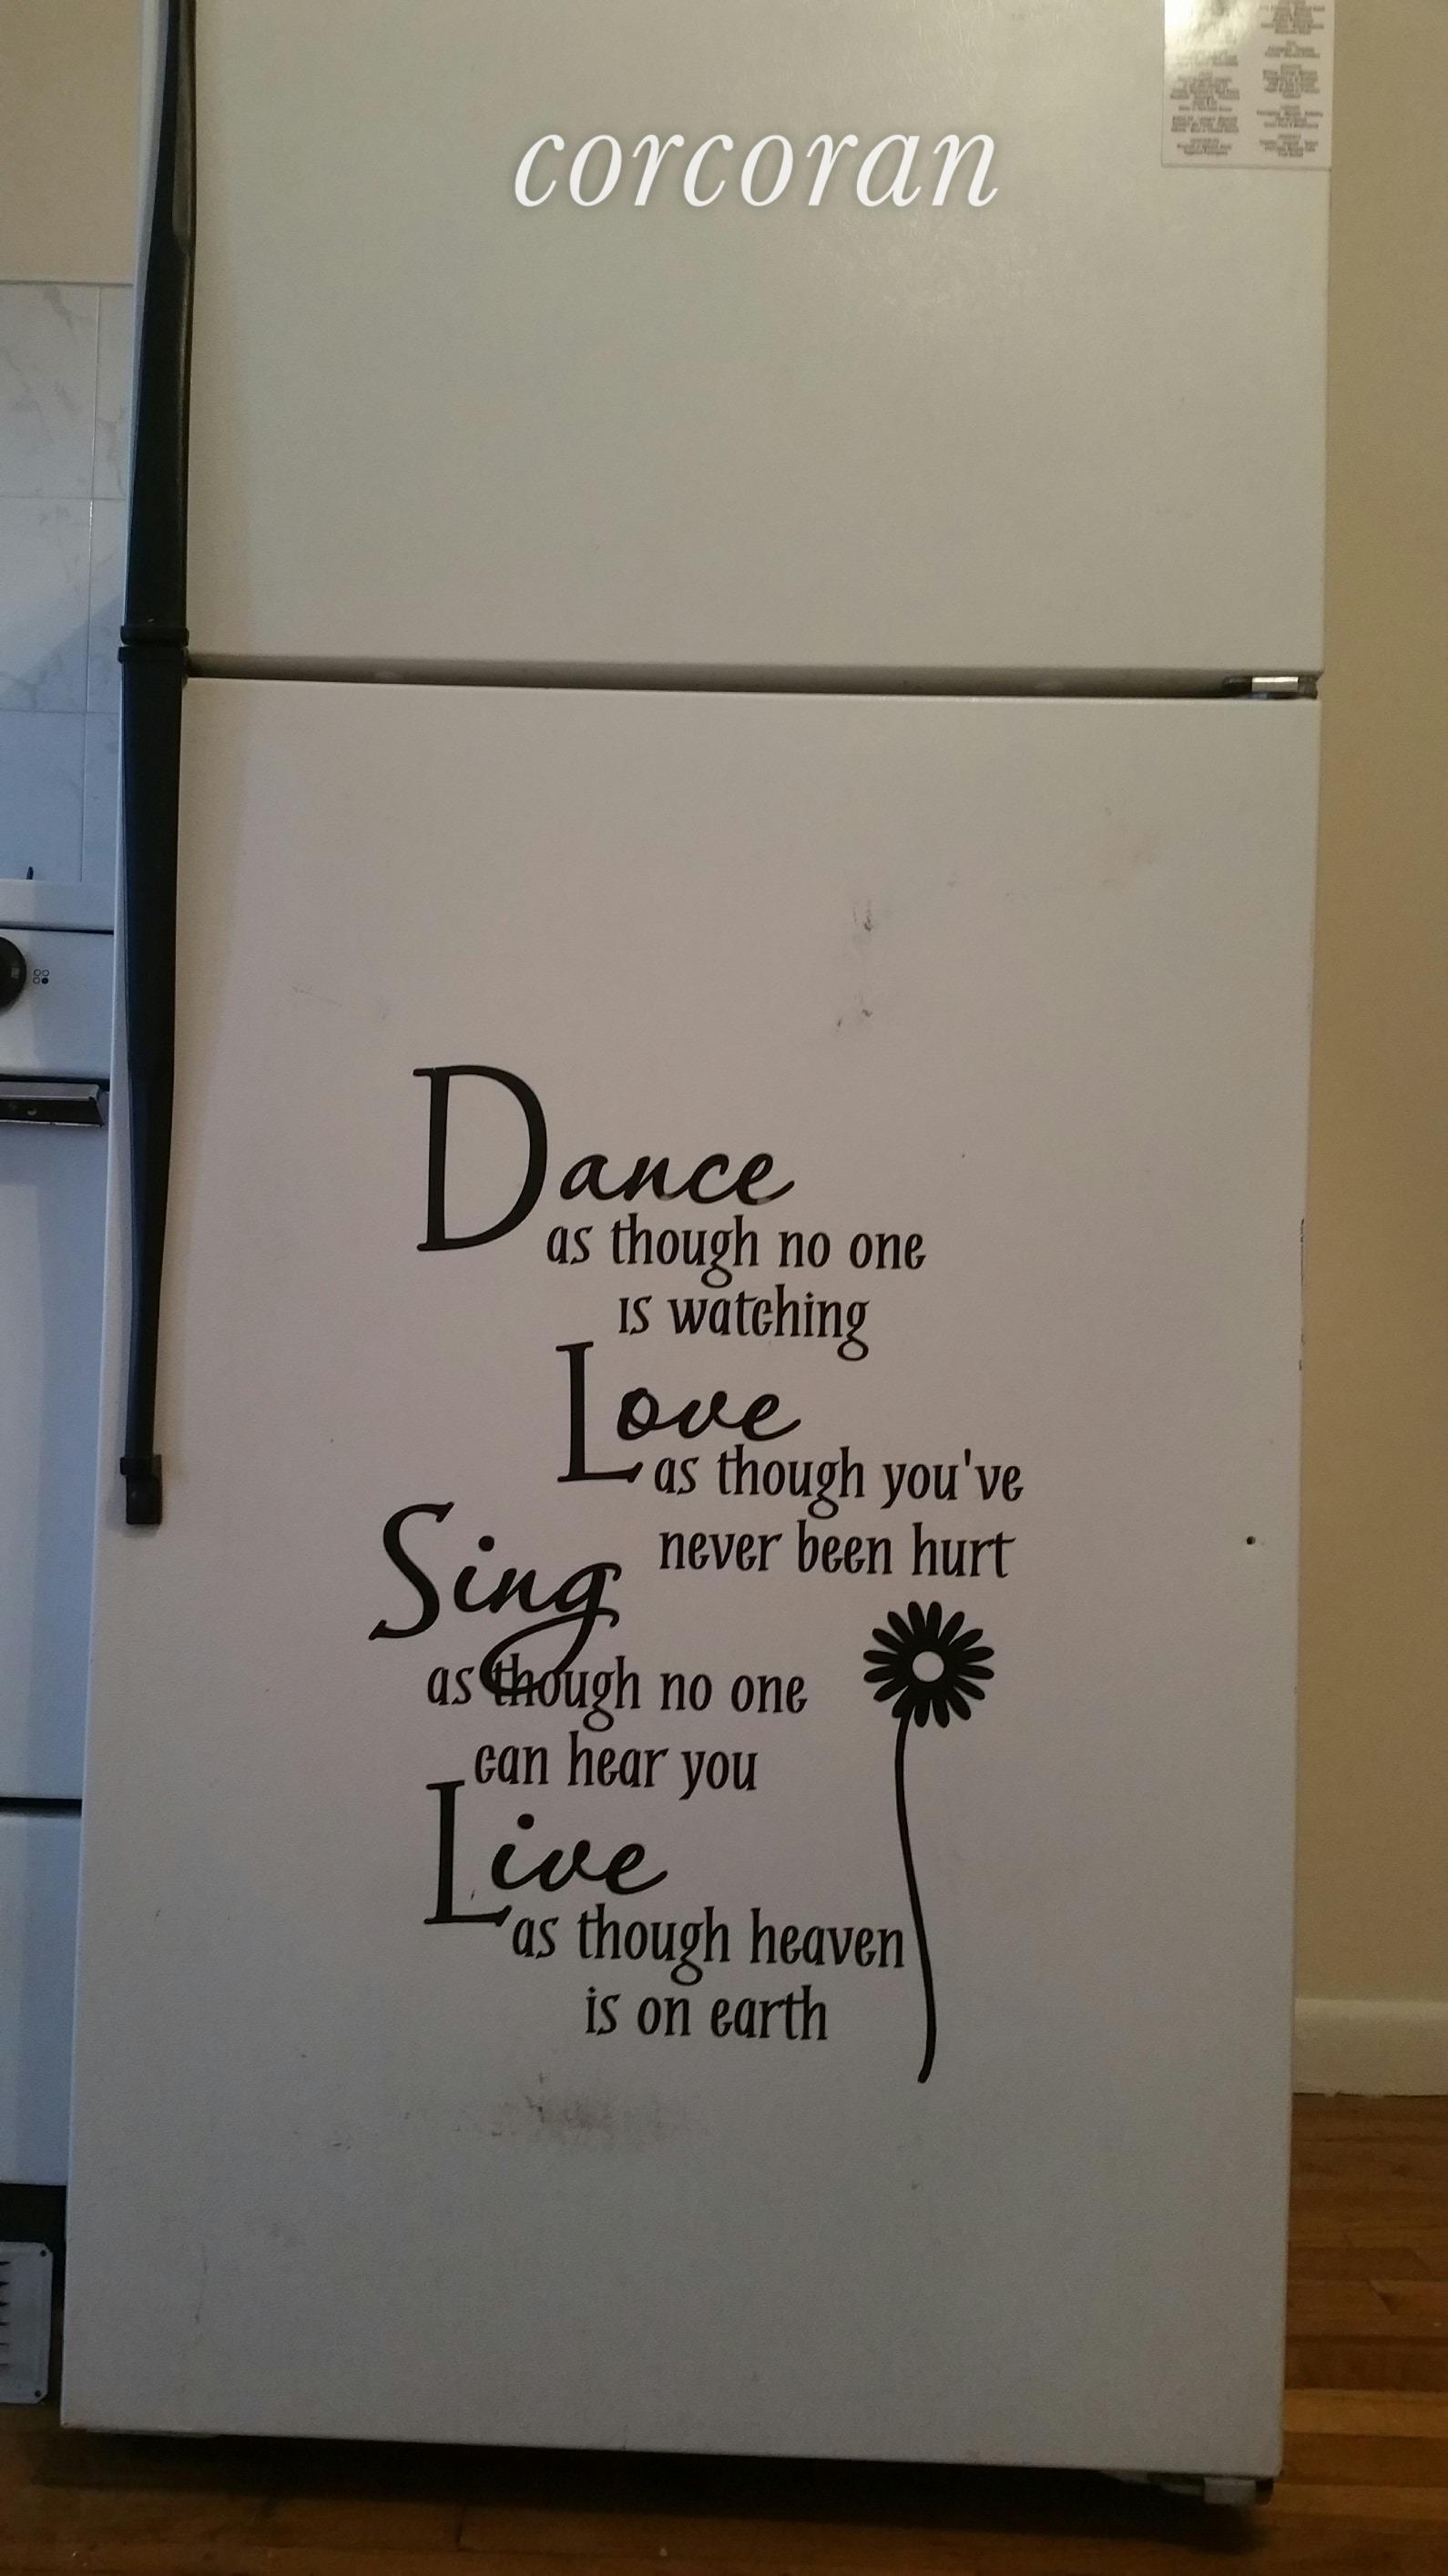 corcoran
Dance
as though no one
is watching
Love
as though you've
never been hurt
Sing
as though no one
can hear you
Live
as though heaven
is on earth